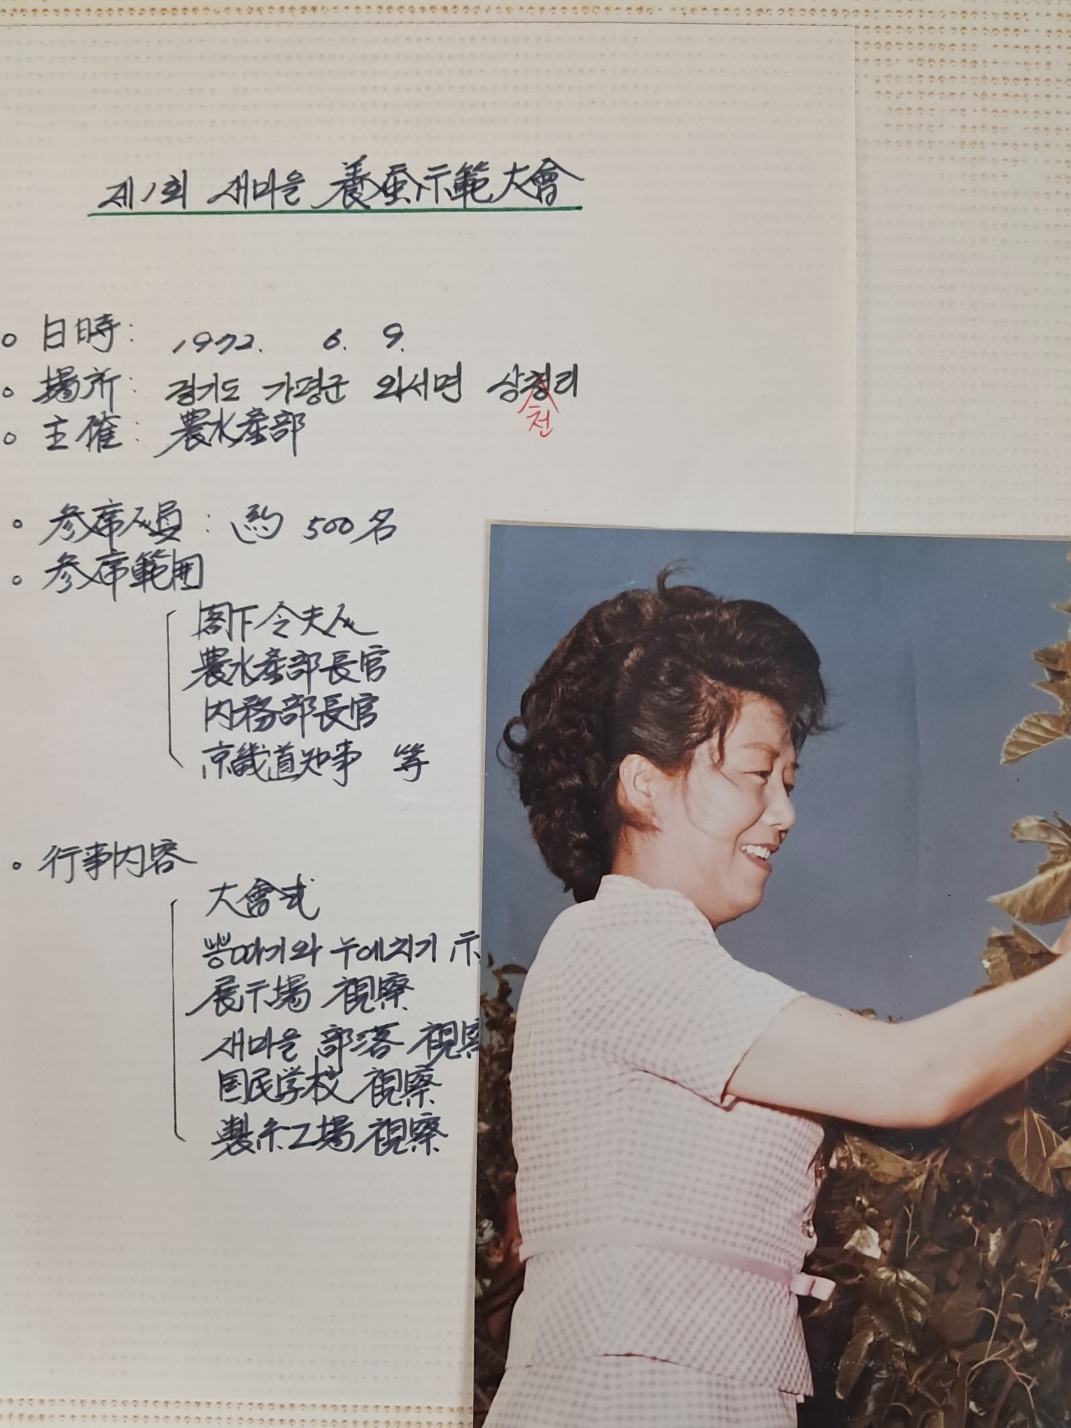 제1회 새마을 養蚕示範大會
o 日時: 1972. 6. 9.
o 場所: 경기도 가평군 외서면 상청리
천
o 主催: 農水産部
o 參席人員: 約 500名
o 參席範囲
閣下令夫人
農水産部長官
内務部長官
京畿道知事 等
o 行事内容
大會式
뽕따기와 누에치기 示
展示場 視察
새마을 部落 視察
国民学校 視察
製糸工場 視察